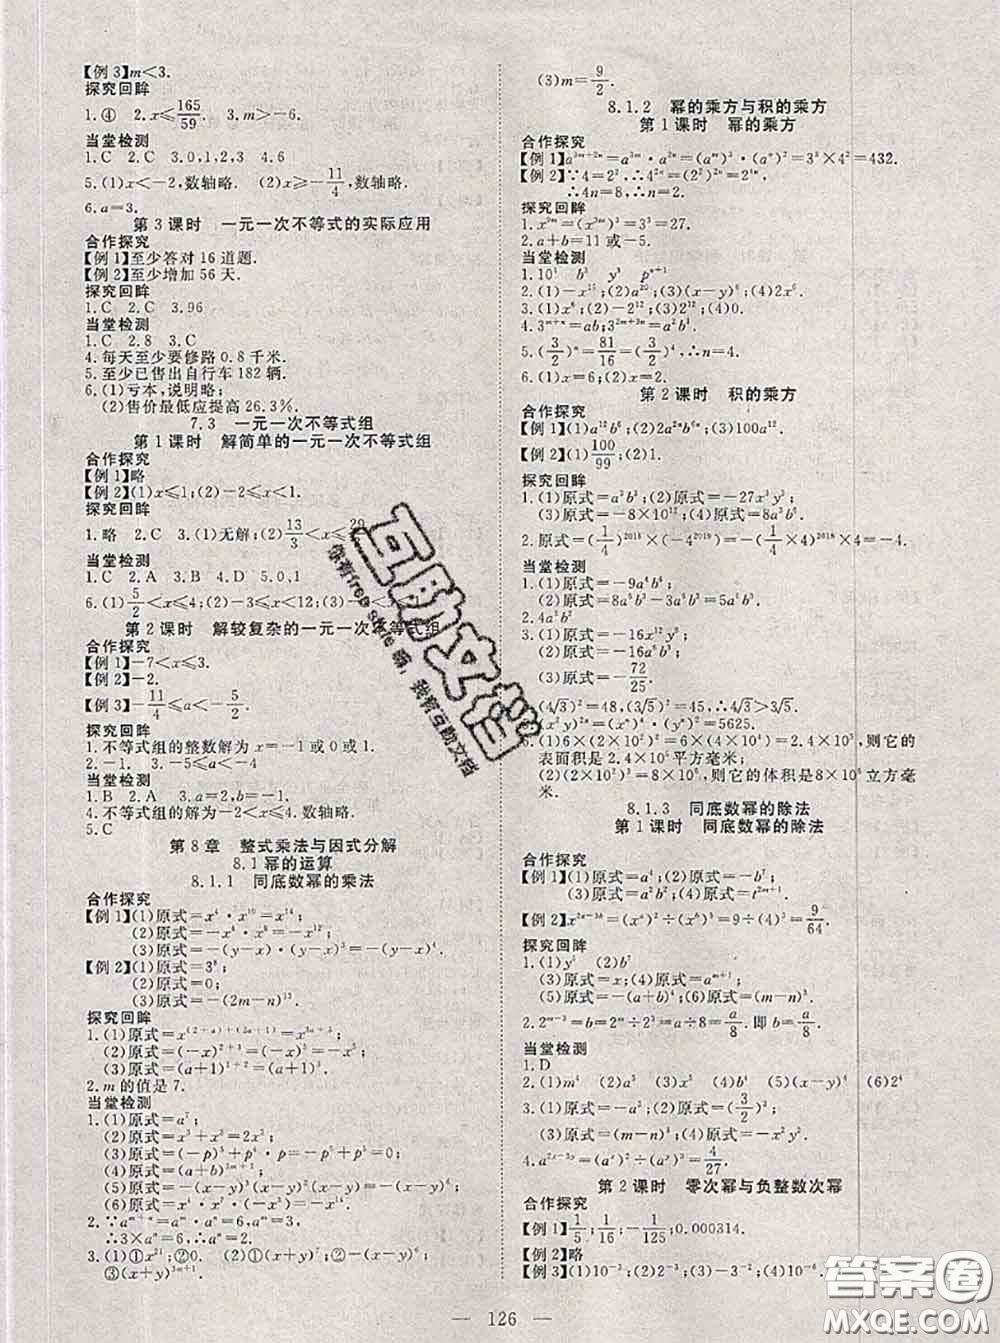 【例3】m<3.
探究回眸
1.④ 2.x≤165/59. 3.m>-6.
当堂检测
1.C 2.C 3.0,1,2 4.6
5.(1)x<-2,数轴略. (2)x≥-11/4,数轴略.
6.a=3.
第3课时 一元一次不等式的实际应用
合作探究
【例1】至少答对16道题.
【例2】至少增加56天.
探究回眸
1.C 2.C 3.96
当堂检测
1.C 2.B 3.C
4.每天至少要修路0.8千米.
5.至少已售出自行车182辆.
6.(1)亏本,说明略.
(2)售价最低应提高26.3%.
7.3 一元一次不等式组
第1课时 解简单的一元一次不等式组
合作探究
【例1】略
【例2】(1)x≤1;(2)-2≤x<1.
探究回眸
1.略 2.C 3.(1)无解;(2)13/3<x≤29
当堂检测
1.C 2.A 3.B 4.D 5.0,1
6.(1)5/2<x≤4;(2)-3<x≤12;(3)-
第2课时 解较复杂的一元一次不等式组
合作探究
【例1】-7<x≤3.
【例2】-2.
【例3】-11/4≤a<-5/2
探究回眸
1.不等式组的整数解为x=-1或0或1.
2.-1. 3.-5≤a<-4
当堂检测
1.B 2.A 3.a=2
4.不等式组的解为-2≤x<1.数轴略.
5.C
第8章 整式乘法与因式分解
8.1幂的运算
8.1.1 同底数幂的乘法
合作探究
【例1】(1)原式=x⁴·x¹⁰=x¹⁴;
(2)原式=-x⁴·x⁸=-x¹²;
(3)原式=-(y-x)·(y-x)³=-(y-x)⁴.
【例2】(1)原式=3⁸;
(2)原式=0;
(3)原式=-(2m-n)¹³.
探究回眸
1.(1)原式=x^((2+a)+(2a+1))=x^(3a+3);
(2)原式=(-x)^(2+3)=(-x)⁵=-x⁵;
(3)原式=(a+1)^(2+3)=(a+1)⁵.
2.m的值是7.
当堂检测
1.(1)原式=a⁷;
(2)原式=x³+x³=2x³;
(3)原式=(-p)⁵+p⁵=-p⁵+p⁵=0;
(4)原式=(a+b)^(m+n);
(5)原式=-(x-y)·(x-y)⁵=-(x-y)⁶;
(6)原式=x·x³·(-x³)=-x⁷.
2.∵a^(m+n)=a^m·a^n=6,a^m=2,
∴2a^n=6,∴a^n=3.
3.(1)①x²¹;②0. (2)①(x+y)⁵;②-(x-y)⁶;
③(x+y)^(3m+1).
(3)m=9/2.
8.1.2 幂的乘方与积的乘方
第1课时 幂的乘方
合作探究
【例1】a^(3m+2n)=a^(3m)·a^(2n)=(a^m)³·(a^n)²=3³×4²=432.
【例2】∵4^(2n)=2⁸,∴4^(2n)=(2²)^(2n)=2^(4n).
∴4n=8,∴n=2.
探究回眸
1.x^(9m)=(x^(3m))³=3³=27.
2.a+b=11或-5.
当堂检测
2.(1)-x¹⁵;(2)a¹⁰;(3)(x-y)⁶;(4)2x¹².
3.(1)x⁶;(2)-2¹²;(3)2¹²;(4)0.
4.3^(m+n)=ab;3^(2m+3n)=a²b³.
5.(3/2)^n=81/16=(3/2)⁴,∴n=4.
6.(1)x=6;(2)x=2.
第2课时 积的乘方
合作探究
【例1】(1)a¹²b⁶;(2)2a^(2n)b^(6n);(3)100a¹².
【例2】(1)100/99;(2)1.
探究回眸
1.(1)原式=a³b³;(2)原式=-27x³y³;
(3)原式=-8×10¹²;(4)原式=8a³b³.
2.原式=(1/4)²⁰¹⁸×(-4²⁰¹⁹)=-(1/4×4)²⁰¹⁸×4=-4.
当堂检测
1.(1)原式=-9a⁴b⁶;
(2)原式=8a⁶b⁶-a⁶b⁶=7a⁶b⁶.
2.4a²b²
3.(1)原式=-16x¹⁰;
(2)原式=8a⁹-16a⁹-a⁹=-9a⁹.
(3)原式=-72/25.
(4√3)²=48,(3√5)²=45,∴4√3>3√5.
(x²y)^(2n)=(x^n)⁴·(y^n)²=5625.
6.(1)6×(2×10²)²=6×(4×10⁴)=2.4×10⁵,则它的
表面积是2.4×10⁵平方毫米;
(2)(2×10²)³=8×10⁶,则它的体积是8×10⁶立方毫
米.
8.1.3 同底数幂的除法
第1课时 同底数幂的除法
合作探究
【例1】(1)原式=a⁴;(2)原式=-b⁷;
(3)原式=a²b²;(4)原式=t^(2m+1).
【例2】x^(2a-3b)=(x^a)²÷(x^b)³=9÷(4)³=9/64.
探究回眸
1.(1)y⁴ (2)b²
(3)原式=x;(4)原式=a^(m+1).
2.2^(m-3)=b=2^m÷2³=a÷8=a/8.即b=a/8.
当堂检测
1.D
2.(1)m⁴ (2)a⁵ (3)x² (4)b² (5)(x-y)⁴ (6)2⁴
3.(1)原式=-a³;(2)原式=(3/2)²;
(3)原式=a²b²;(4)原式=-(x-y)².
4.a^(2x-3y)=(a^x)²÷(a^y)³=4/27.
第2课时 零次幂与负整数次幂
合作探究
【例1】1/5;1/16;-1/125;0.000314.
【例2】略
【例3】(1)10⁻²;(2)-3⁻²;(3)10⁻².
126
互助文档
你有free style嘛,我有互助文档
答案圈
MXQE.COM